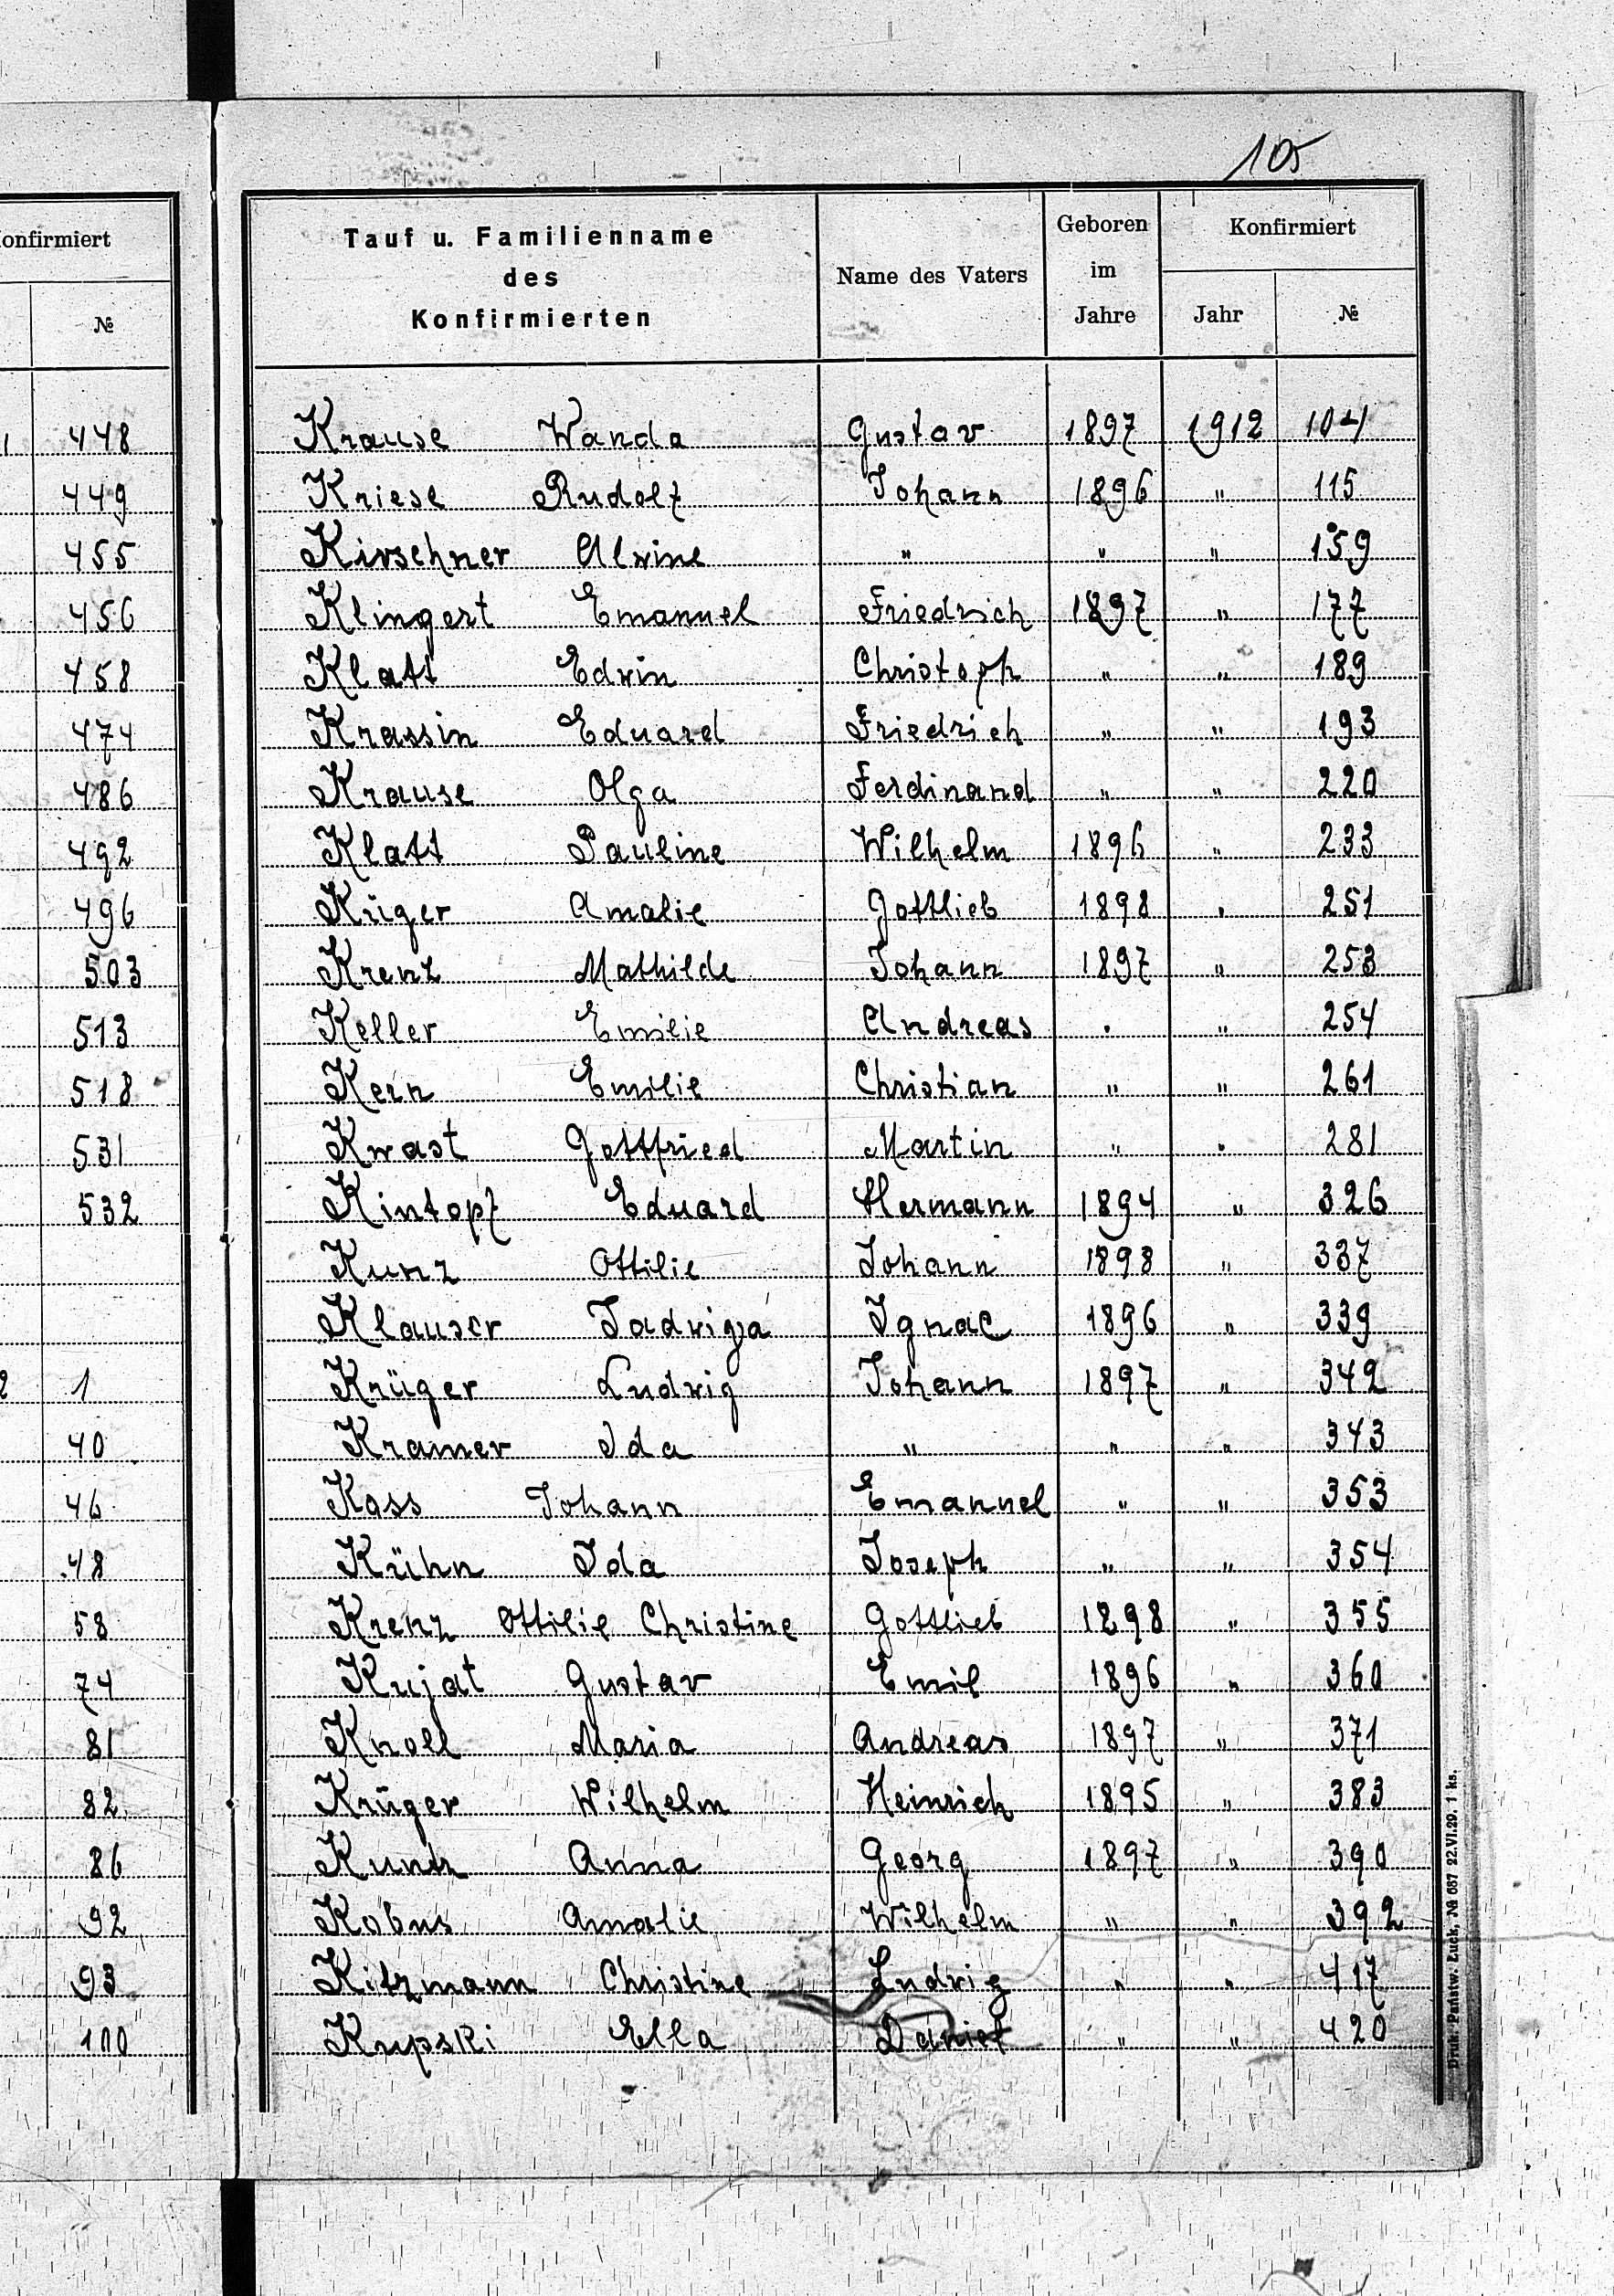 105
onfirmiert
№
448
449
455
456
458
474
486
492
496
503
513
518
531
532
1
40
46
48
58
74
81
82
86
92
93
100
Tauf u. Familienname des Konfirmierten | Name des Vaters | Geboren im Jahre | Konfirmiert
Jahr | №
Krause Wanda Gustav 1897 1912 104
Kriese Rudolf Johann 1896 " 115
Kirschner Alwine " " " 159
Klingert Emanuel Friedrich 1897 " 177
Klatt Edwin Christoph " " 189
Krassin Eduard Friedrich " " 193
Krause Olga Ferdinand " " 220
Klatt Pauline Wilhelm 1896 " 233
Krüger Amalie Gottlieb 1898 " 251
Krenz Mathilde Johann 1897 " 253
Keller Emilie Andreas " " 254
Kern Emilie Christian " " 261
Kwast Gottfried Martin " " 281
Kintopf Eduard Hermann 1894 " 326
Kunz Ottilie Johann 1898 " 337
Klauser Jadwiga Ignac 1896 " 339
Krüger Ludwig Johann 1897 " 342
Kramer Ida " " " 343
Koss Johann Emanuel " " 353
Kühn Ida Joseph " " 354
Krenz Ottilie Christine Gottlieb 1898 " 355
Kujat Gustav Emil 1896 " 360
Knoll Maria Andreas 1897 " 371
Krüger Wilhelm Heinrich 1895 " 383
Kuntz Anna Georg 1897 " 390
Kobus Amalie Wilhelm " " 392
Kitzmann Christine Ludwig " " 417
Krupski Ella Daniel " " 420
Druk. Państw. Łuck, № 687 22.VI.29. 1 ks.